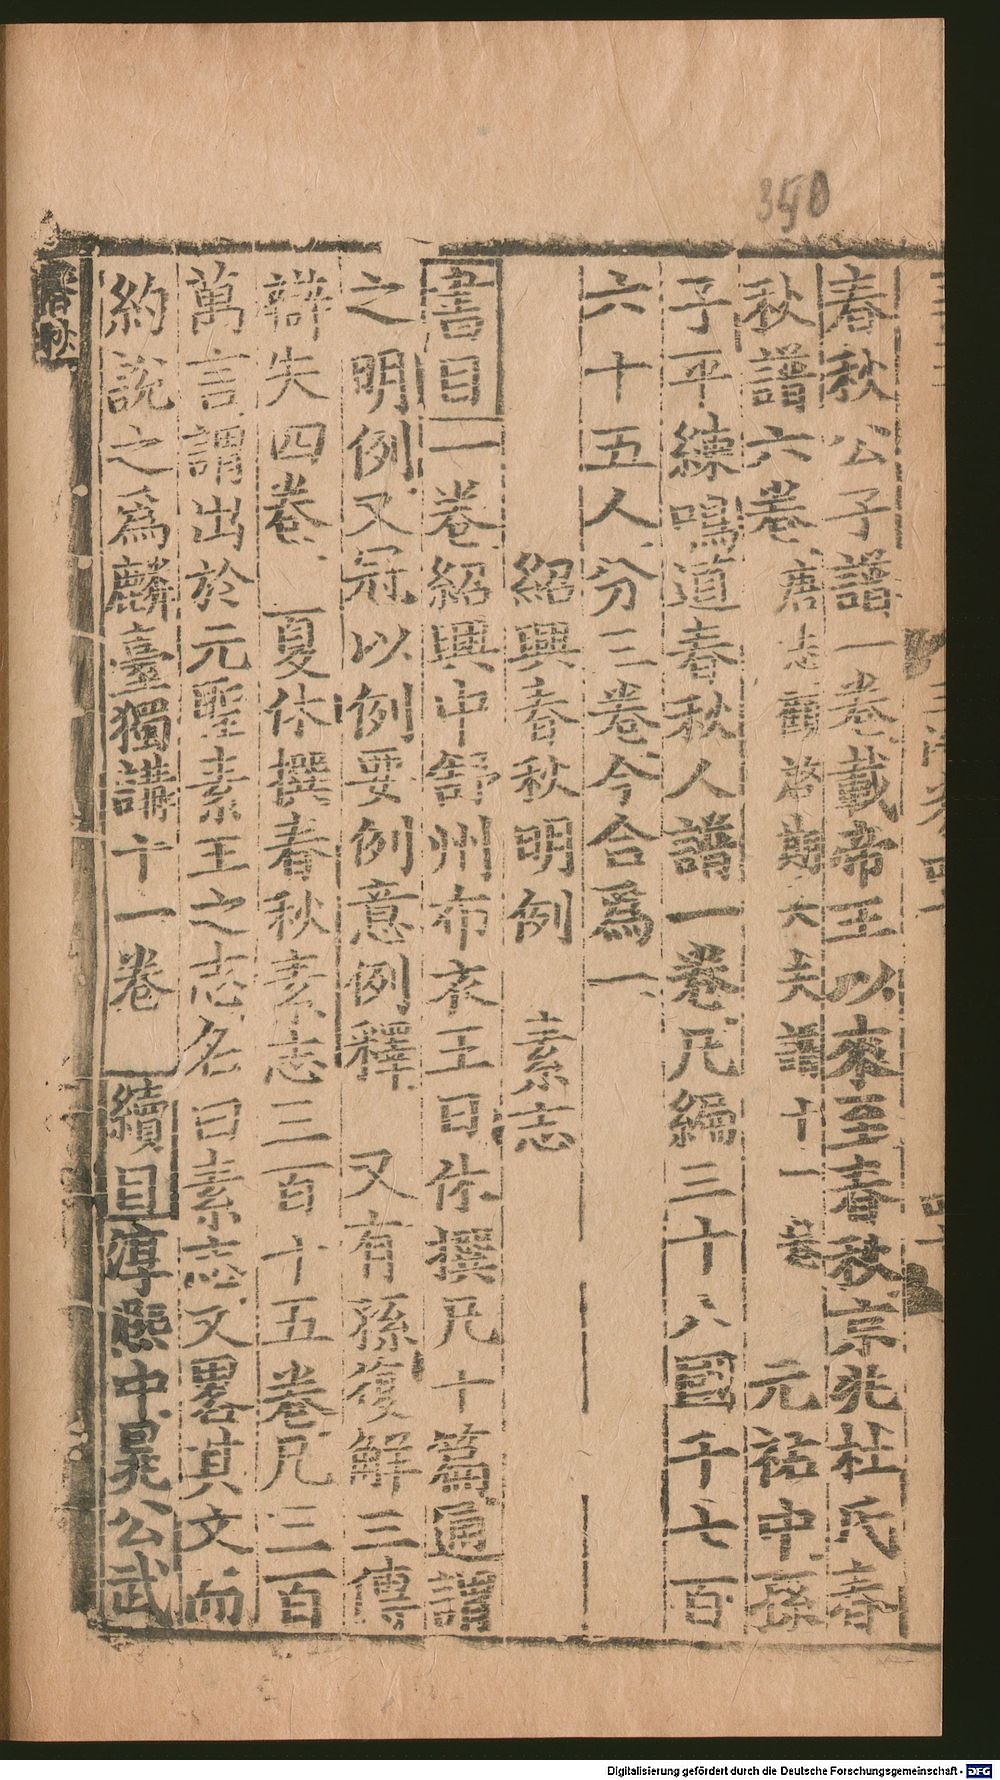 350
春秋公子譜一卷載帝王以來至春秋宗兆杜氏春
秋譜六卷唐志顧啓期大夫譜十一卷 元祐中孫
子平練鳴道春秋人譜一卷凡編三十八國千七百
六十五人分三卷今合爲一
紹興春秋明例 素志
書目一卷紹興中舒州布衣王日休撰凡十篇通謂
之明例又冠以例要例意例釋 又有孫復解三傳
辯失四卷 夏休撰春秋素志三百十五卷凡三百
萬言謂出於元聖素王之志名曰素志又畧其文而
約說之爲麟臺獨講十一卷 續目淳熙中晁公武
Digitalisierung gefördert durch die Deutsche Forschungsgemeinschaft - DFG